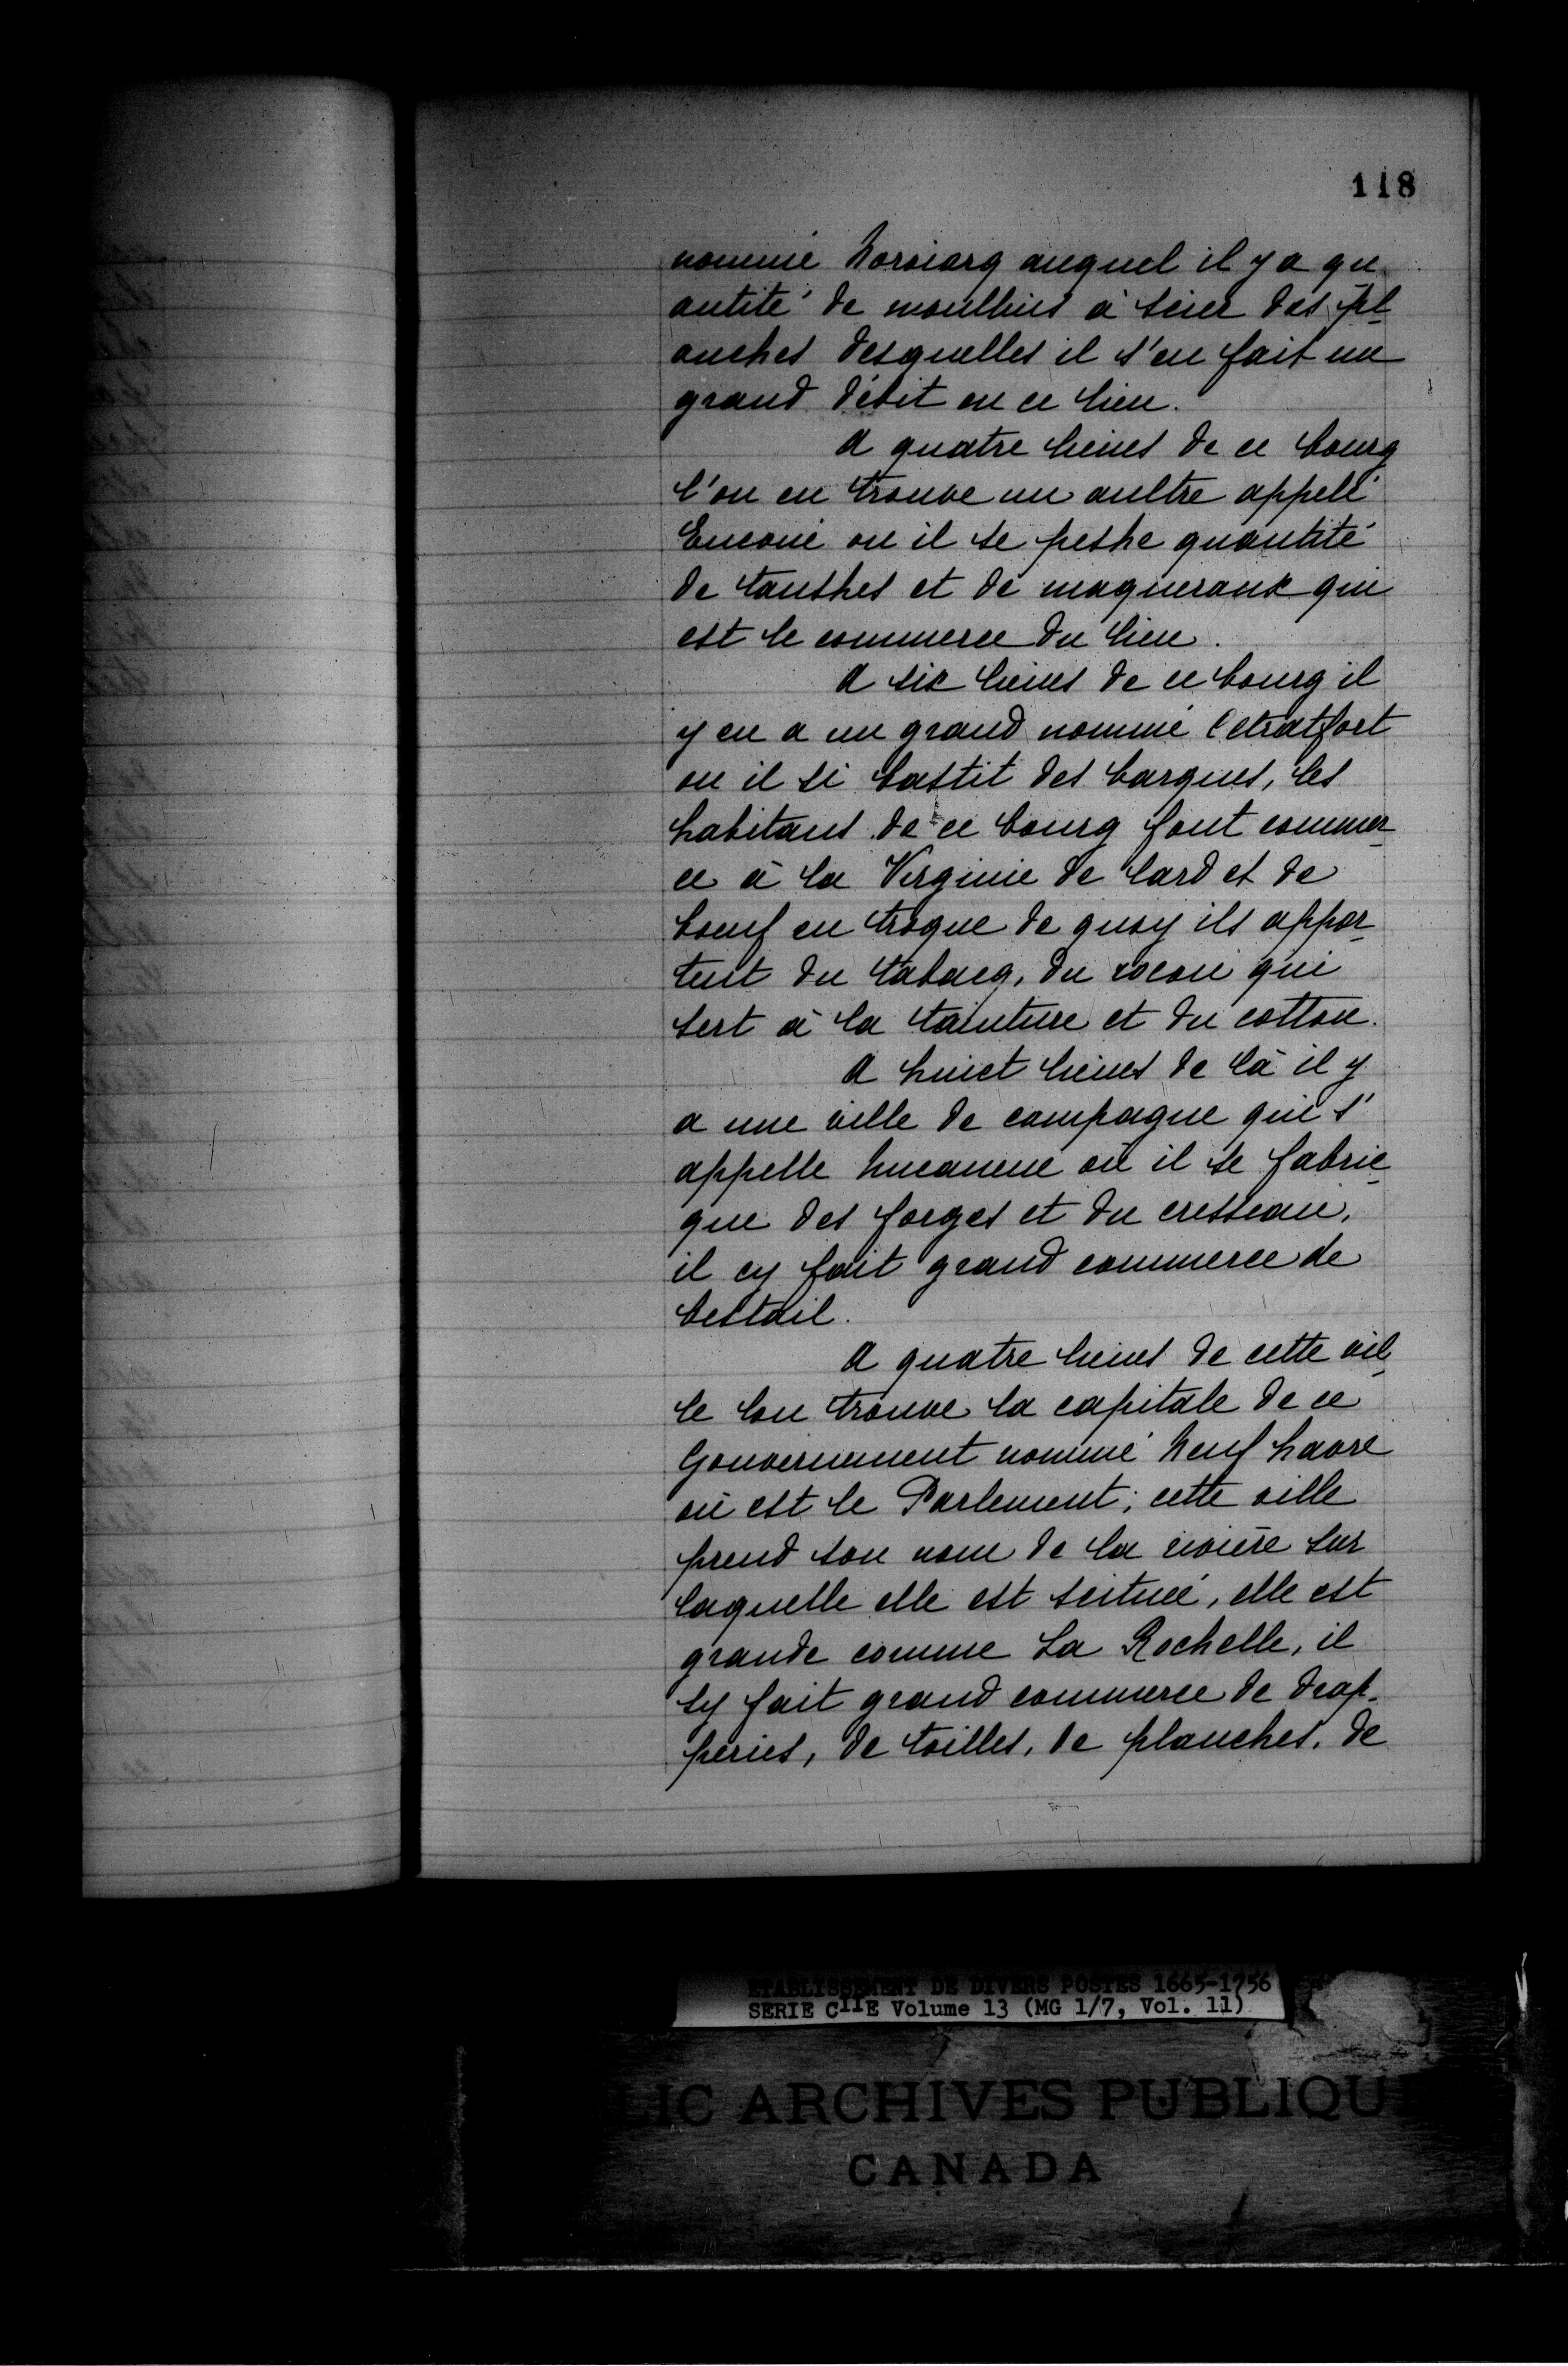 118
nommé Norwarg auquel il y a qu
antité de moullins à sier des pl
anches desquelles il s'en fait un
grand débit en ce lieu.
A quatre lieues de ce bourg
l'on en trouve un aultre appellé
ou il se peshe quantité
de tanshes et de maqueraux qui
est le commerce du lieu.
A six lieues de ce bourg il
y en a un grand nommé Cetratfort
ou il si bastit des barques, les
habitans de ce bourg font commer
ce à la Virginie de lard et de
boeuf en troque de quoy ils appor
tent du tabacq, du rocou qui
sert à la tainture et du cotton.
A huict lieues de là il y
a une ville de campagne qui s'
appelle où il se fabric
que des forges et du cresseau,
il cy fait grand commerce de
bestail.
A quatre lieues de cette vil
le lon trouve la capitale de ce
Gouvernement nommé Neuf havre
où est le Parlement; cette ville
prend son nom de la rivière sur
laquelle elle est scituée, elle est
grande comme La Rochelle, il
sy fait grand commerce de drap-
peries, de toilles, de planches, de
ETABLISSEMENT DE DIVERS POSTES 1665-1756
SERIE CIIE Volume 13 (MG 1/7, Vol. 11)
LIC ARCHIVES PUBLIQU
CANADA